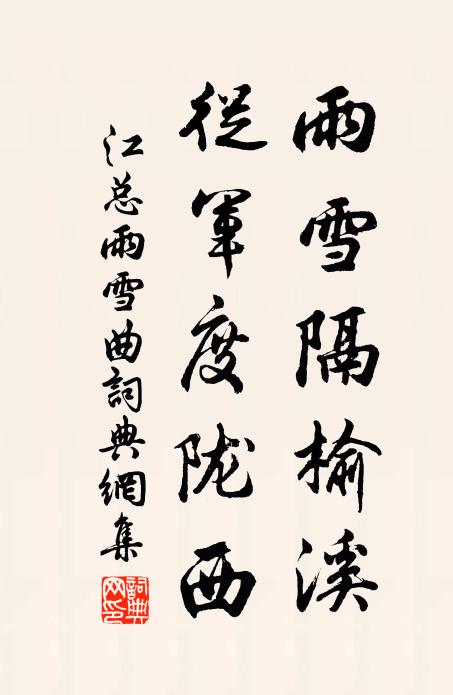 雨雪隔榆溪
從軍度陇西
江总雨雪曲詞典網集
詞典网印